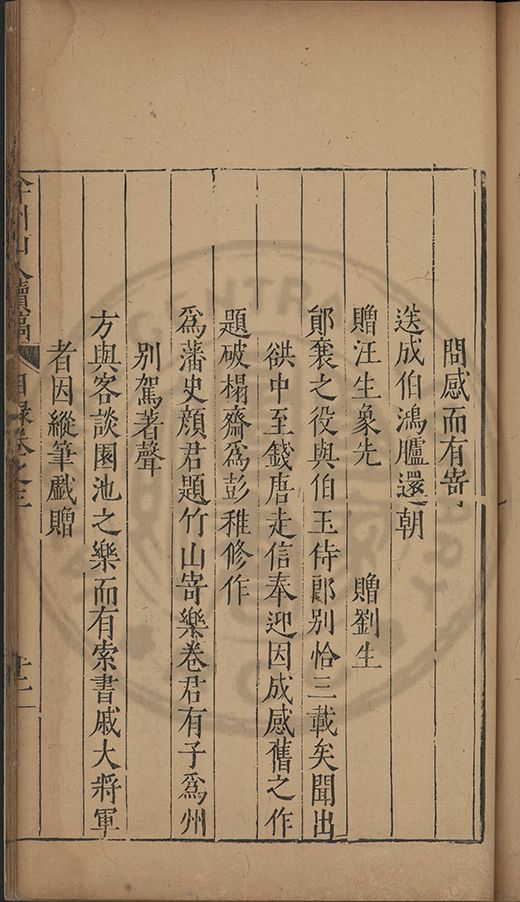 問感而有寄
送成伯鴻臚還朝
贈汪生象先　贈劉生
鄖襄之役與伯玉侍郎別恰三載矣聞出
㳀中至錢唐走信奉迎因成感舊之作
題破榻齋爲彭稚修作
爲藩史顔君題竹山寄樂卷君有子爲州
別駕著聲
方與客談園池之樂而有索書戚大將軍
者因縱筆戲贈
弇州山人續稿
目録卷之三
十二